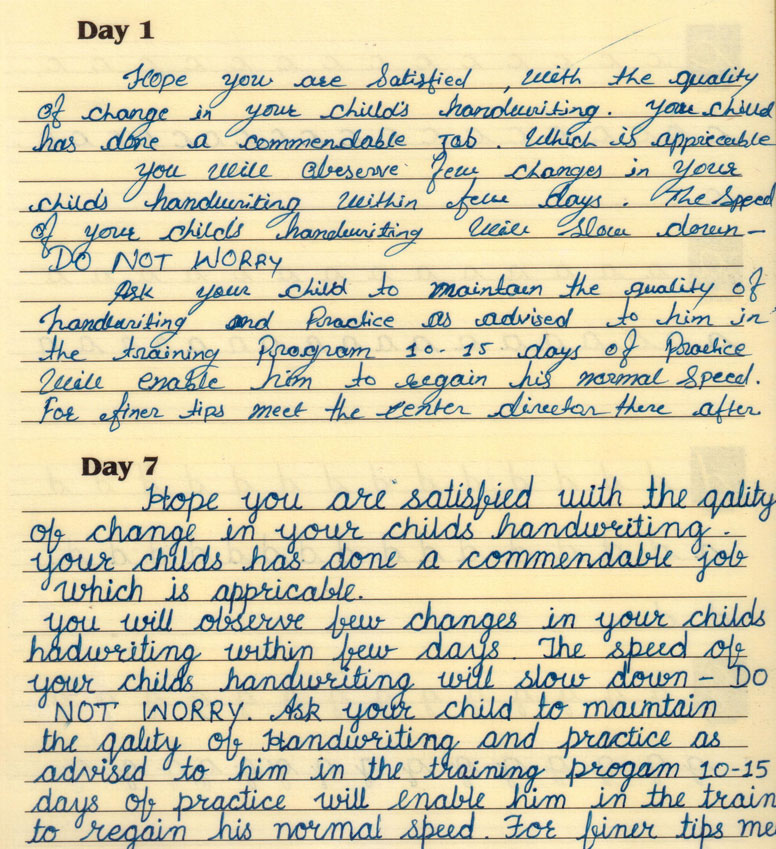 Day 1
Hope you are Satisfied, with the quality
of change in your child's handwriting. your child
has done a commendable Job. Which is appriceable
you will abeserve few changes in your
child's handwriting within few days. The Speed
of your child's handwriting will slow down-
DO NOT WORRY
Ask your child to maintain the quality of
handwriting and Practice as advised to him in
the training Program 10-15 days of Practice
Will enable him to regain his normal Speed.
For finer tips meet the center director there after
Day 7
Hope you are satisfied with the qality
of change in your childs handwriting.
your childs has done a commendable job
which is appricable.
you will observe few changes in your childs
hadwriting within few days. The speed of
your childs handwriting will slow down - DO
NOT WORRY. Ask your child to maintain
the qality of Handwriting and practice as
advised to him in the training progam 10-15
days of practice will enable him in the train
to regain his normal speed. For finer tips me